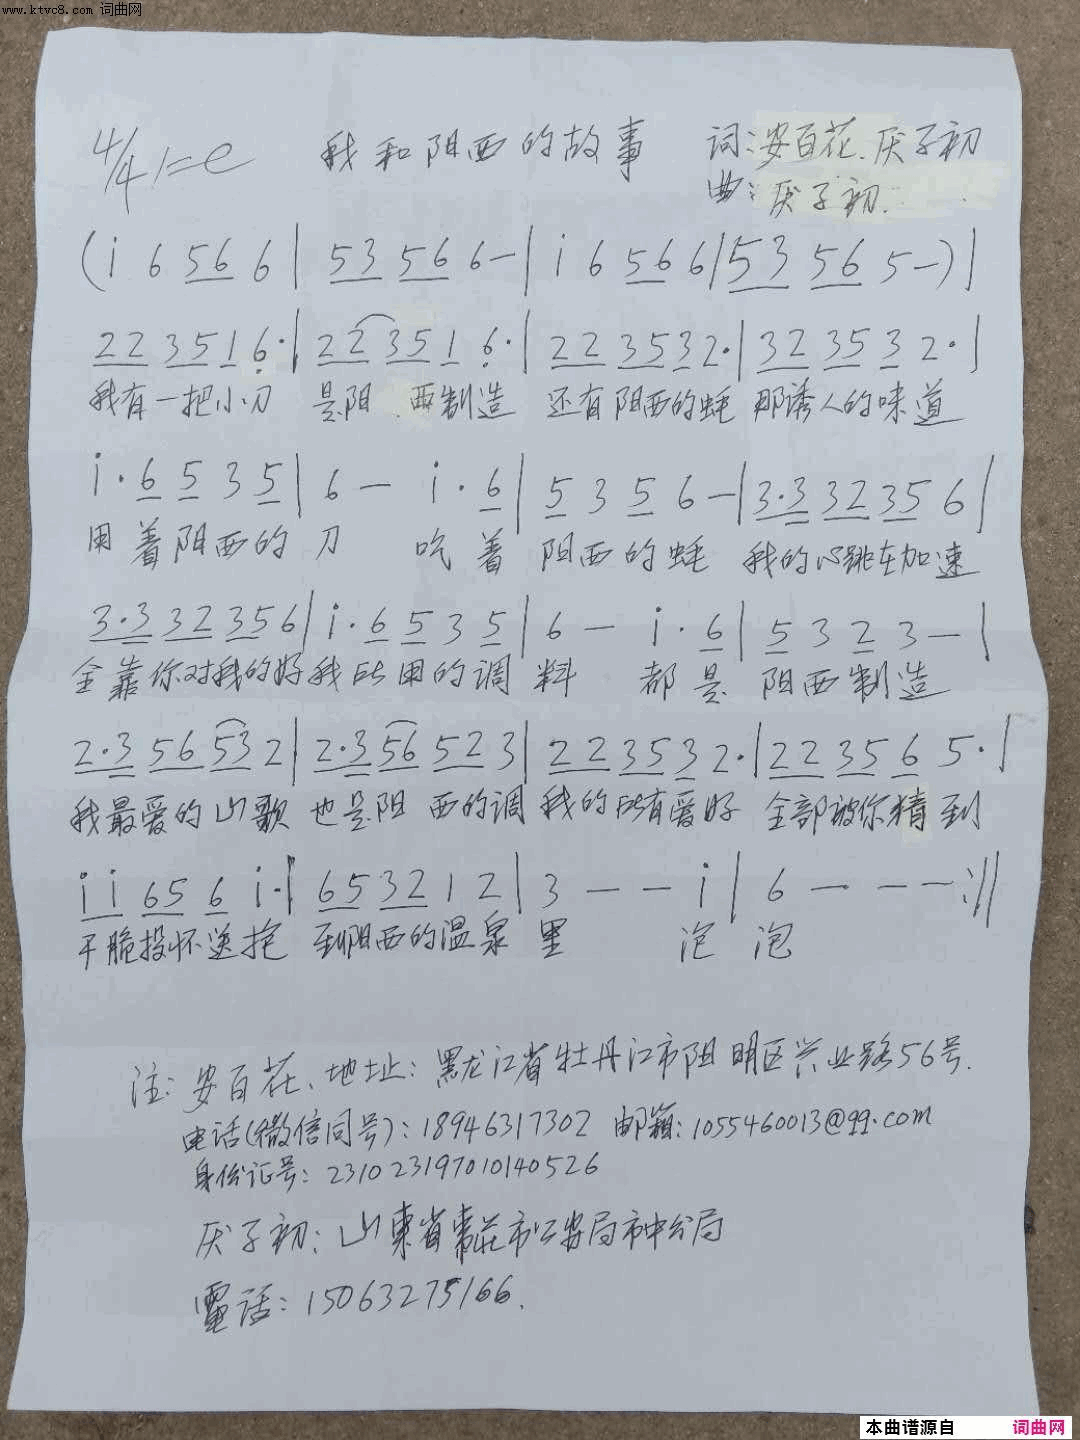 www.ktvc8.com 词曲网
4/4 1=e 我和阳西的故事 词:安百花、厌子初
曲:厌子初
(i 6 56 6 | 53 56 6 - | i 6 56 6 | 53 56 5 -) |
22 35 1 6· | 22 35 1 6· | 22 35 3 2· | 32 35 3 2· |
我有一把小刀 是阳西制造 还有阳西的蚝 那诱人的味道
i·6 5 3 5 | 6 - i·6 | 5 3 5 6 - | 3·3 32 35 6 |
用着阳西的刀 吃着 阳西的蚝 我的心跳在加速
3·3 32 35 6 | i·6 5 3 5 | 6 - i·6 | 5 3 2 3 - |
全靠你对我的好我所用的调料 都是 阳西制造
2·3 56 53 2 | 2·3 56 52 3 | 22 35 3 2· | 22 35 6 5· |
我最爱的山歌 也是阳西的调 我的所有爱好 全部被你猜到
i i 65 6 i· | 65 32 1 2 | 3 - - i | 6 - - - :||
干脆投怀送抱 到阳西的温泉里 泡泡
注:安百花、地址:黑龙江省牡丹江市阳明区兴业路56号.
电话(微信同号):18946317302 邮箱:1055460013@qq.com
身份证号:231023197010140526
厌子初:山东省枣庄市公安局市中分局
电话:15063275166.
本曲谱源自 词曲网